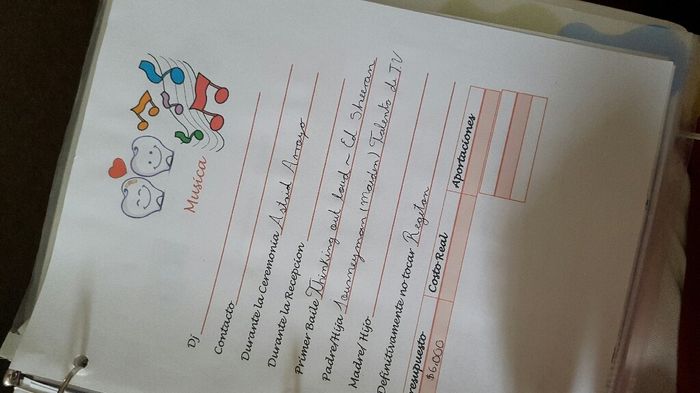 Musica
Dj
Contacto
Durante la Ceremonia Astrid Arroyo
Durante la Recepcion
Primer Baile Thinking out loud ~ Ed Sheeran
Padre/Hija Journeyman (Maida) Talento de T.V
Madre/Hijo
Definitivamente no tocar Regeton
resupuesto Costo Real Aportaciones
$6,000